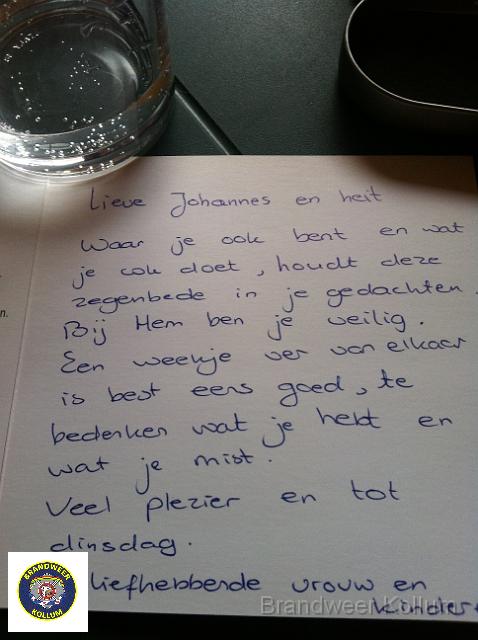 Lieve Johannes en heit
Waar je ook bent en wat
je ook doet, houdt deze
zegenbede in je gedachten.
n.
Bij Hem ben je veilig.
Een weekje ver van elkaar
is best eens goed, te
bedenken wat je hebt en
wat je mist.
Veel plezier en tot
dinsdag.
liefhebbende vrouw en
kinder
BRANDWEER
KOLLUM
Brandweer Kollum